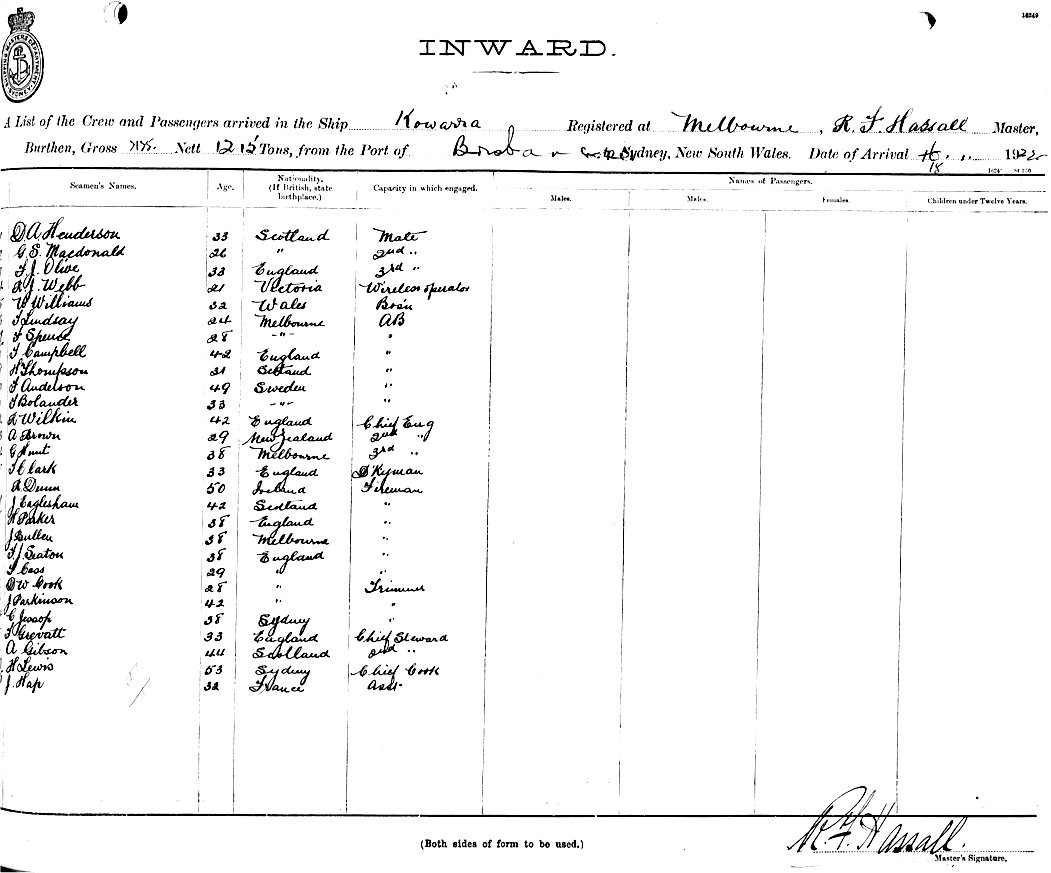 16249
INWARD.
A List of the Crew and Passengers arrived in the Ship Kowarra Registered at Melbourne, R. F. Hassall Master,
Burthen, Gross Nett 1215 Tons, from the Port of to Sydney, New South Wales. Date of Arrival 192
Seamen's Names. Age. Nationality. (If British, state birthplace.) Capacity in which engaged. Names of Passengers.
Males. Males. Females. Children under Twelve Years.
D. A Henderson 33 Scotland Mate
G. S. Macdonald 26 " 2nd "
F. J. Olive 33 England 3rd "
R J. Webb 21 Victoria Wireless operator
W Williams 32 Wales Bosn
F Lindsay 24 Melbourne AB
F Spence 28 -"- "
F Campbell 42 England "
H Thompson 31 Scotland "
F Anderson 49 Sweden "
F Bolander 33 -"- "
R Wilkin 42 England Chief Eng
A Brown 29 New Zealand 2nd "
G Hunt 38 Melbourne 3rd "
F Clark 33 England D'Kyman
R Dunn 50 Ireland Fireman
J Eaglesham 42 Scotland "
H Parker 38 England "
J Bullen 38 Melbourne "
F. J. Seaton 38 England "
F Cass 29 " "
D W Cook 28 " Trimmer
J Parkinson 42 " "
C Jessop 38 Sydney "
F Grevatt 33 England Chief Steward
A Gibson 44 Scotland 2nd "
H Lewis 53 Sydney Chief Cook
J. Hap 32 France Asst.
(Both sides of form to be used.)
R. F. Hassall.
Master's Signature.